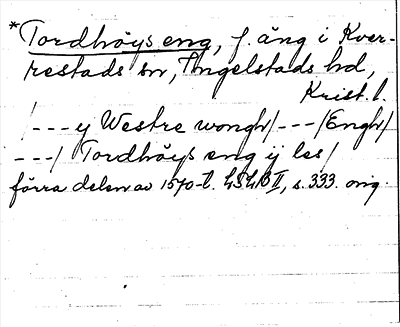 *Tordhöys eng, f. äng i Kver-
restads sn, Ingelstads hd,
Krist. l.
/--- y Westre wongh/---/Engh/
---/ Tordhöys eng ij les/
förra delen av 1570-t. LSLB II, s. 333. orig.